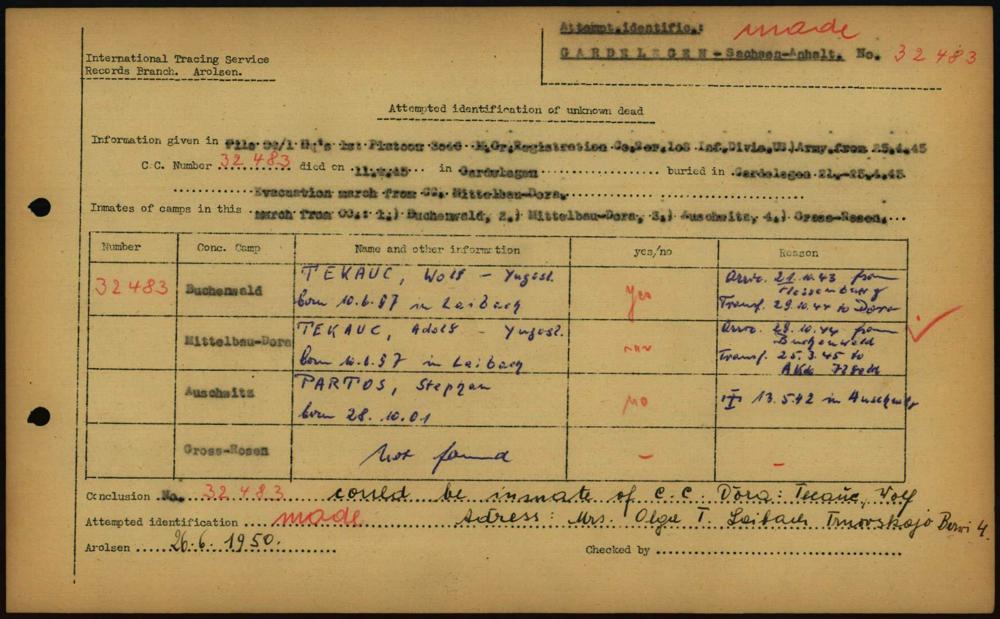 Attempt.identific.: made
GARDELEGEN-Sachsen-Anhalt. No. 32483
International Tracing Service
Records Branch. Arolsen.
Attempted identification of unknown dead
Information given in File Hq's 1st Platoon 3046 Gr.Registration Co. Inf.Divis.US)Army.from 25.4.45
C.C. Number 32483 died on in Gardelegen buried in Gardelegen 21.-25.4.45
Evacuation march from CC. Mittelbau-Dora.
Inmates of camps in this march from CC.: 1.) Buchenwald, 2.) Mittelbau-Dora, 3.) Auschwitz, 4.) Gross-Rosen.
Number Conc. Camp Name and other information yes/no Reason
32483 Buchenwald TEKAUC, Wolf - Yugosl. yes Arriv. 21.10.43 from
Flossenbürg
born 10.6.97 in Laibach Transf. 29.10.44 to Dora
Mittelbau-Dora TEKAUC, Adolf - Yugosl. Arriv. 28.10.44 from
Buchenwald
born 10.6.97 in Laibach Transf. 25.3.45 to
AKdo
Auschwitz PARTOS, Stephan no 13.5.42 in Auschwitz
born 28.10.01
Gross-Rosen Not found - -
Conclusion No. 32483 could be inmate of C.C. Dora: Tekauc, Wolf
Attempted identification made Adress: Mrs. Olga T. Laibach 4.
Arolsen 26.6.1950. Checked by